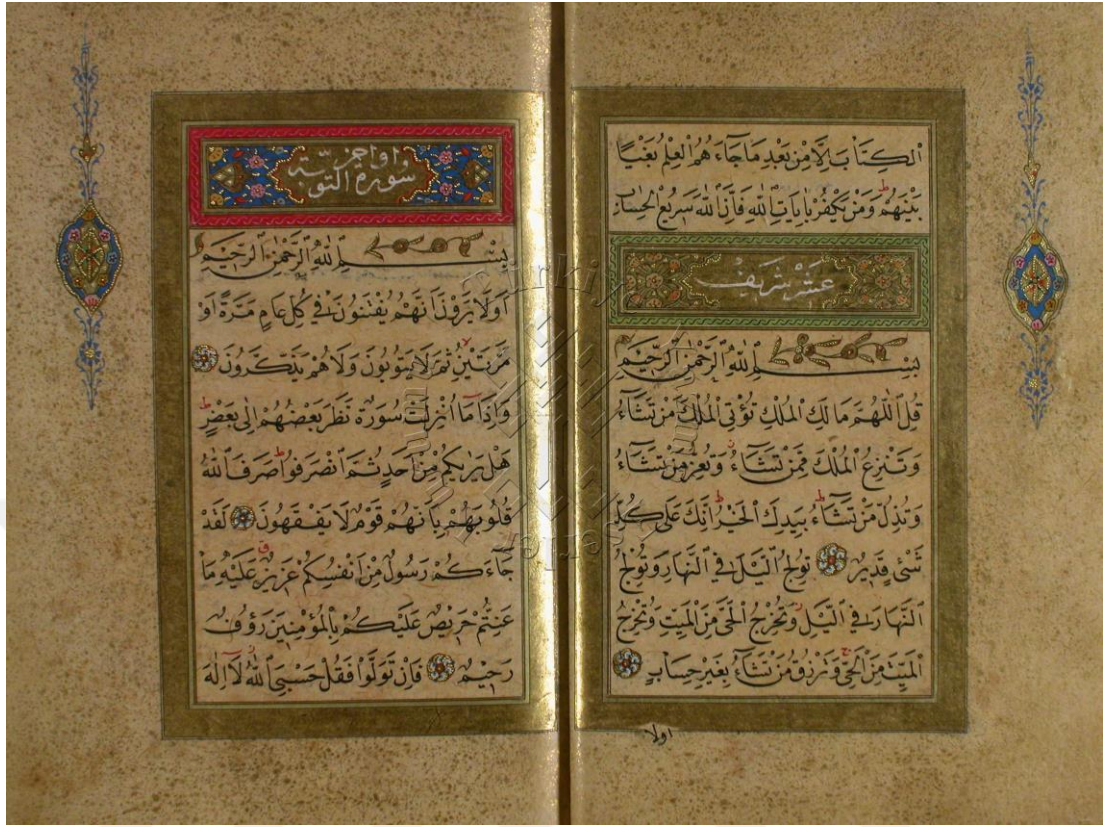 الكِتَابَ إِلَّا مِنْ بَعْدِ مَا جَاءَهُمُ العِلْمُ بَغْيًا
بَيْنَهُمْ ط وَمَنْ يَكْفُرْ بِآيَاتِ اللهِ فَإِنَّ اللهَ سَرِيعُ الحِسَابِ
عشر شريف
بِسْمِ اللهِ الرَّحْمٰنِ الرَّحِيمِ
قُلِ اللّٰهُمَّ مَالِكَ المُلْكِ تُؤْتِي المُلْكَ مَنْ تَشَاءُ
وَتَنْزِعُ المُلْكَ مِمَّنْ تَشَاءُ وَتُعِزُّ مَنْ تَشَاءُ
وَتُذِلُّ مَنْ تَشَاءُ ط بِيَدِكَ الخَيْرُ ط إِنَّكَ عَلٰى كُلِّ
شَىْءٍ قَدِيرٌ تُولِجُ الَّيْلَ فِي النَّهَارِ وَتُولِجُ
النَّهَارَ فِي الَّيْلِ وَتُخْرِجُ الحَيَّ مِنَ المَيِّتِ وَتُخْرِجُ
المَيِّتَ مِنَ الحَيِّ وَتَرْزُقُ مَنْ تَشَاءُ بِغَيْرِ حِسَابٍ
اولا
اواخر
سورة التوبة
بِسْمِ اللهِ الرَّحْمٰنِ الرَّحِيمِ
أَوَلَا يَرَوْنَ أَنَّهُمْ يُفْتَنُونَ فِي كُلِّ عَامٍ مَرَّةً أَوْ
مَرَّتَيْنِ ثُمَّ لَا يَتُوبُونَ وَلَا هُمْ يَذَّكَّرُونَ
وَإِذَا مَا أُنْزِلَتْ سُورَةٌ نَظَرَ بَعْضُهُمْ إِلٰى بَعْضٍ ط
هَلْ يَرٰيكُمْ مِنْ أَحَدٍ ثُمَّ انْصَرَفُوا ط صَرَفَ اللهُ
قُلُوبَهُمْ بِأَنَّهُمْ قَوْمٌ لَا يَفْقَهُونَ لَقَدْ
جَاءَكُمْ رَسُولٌ مِنْ أَنْفُسِكُمْ عَزِيزٌ عَلَيْهِ مَا
عَنِتُّمْ حَرِيصٌ عَلَيْكُمْ بِالمُؤْمِنِينَ رَؤُفٌ
رَحِيمٌ فَإِنْ تَوَلَّوْا فَقُلْ حَسْبِيَ اللهُ لَا إِلٰهَ